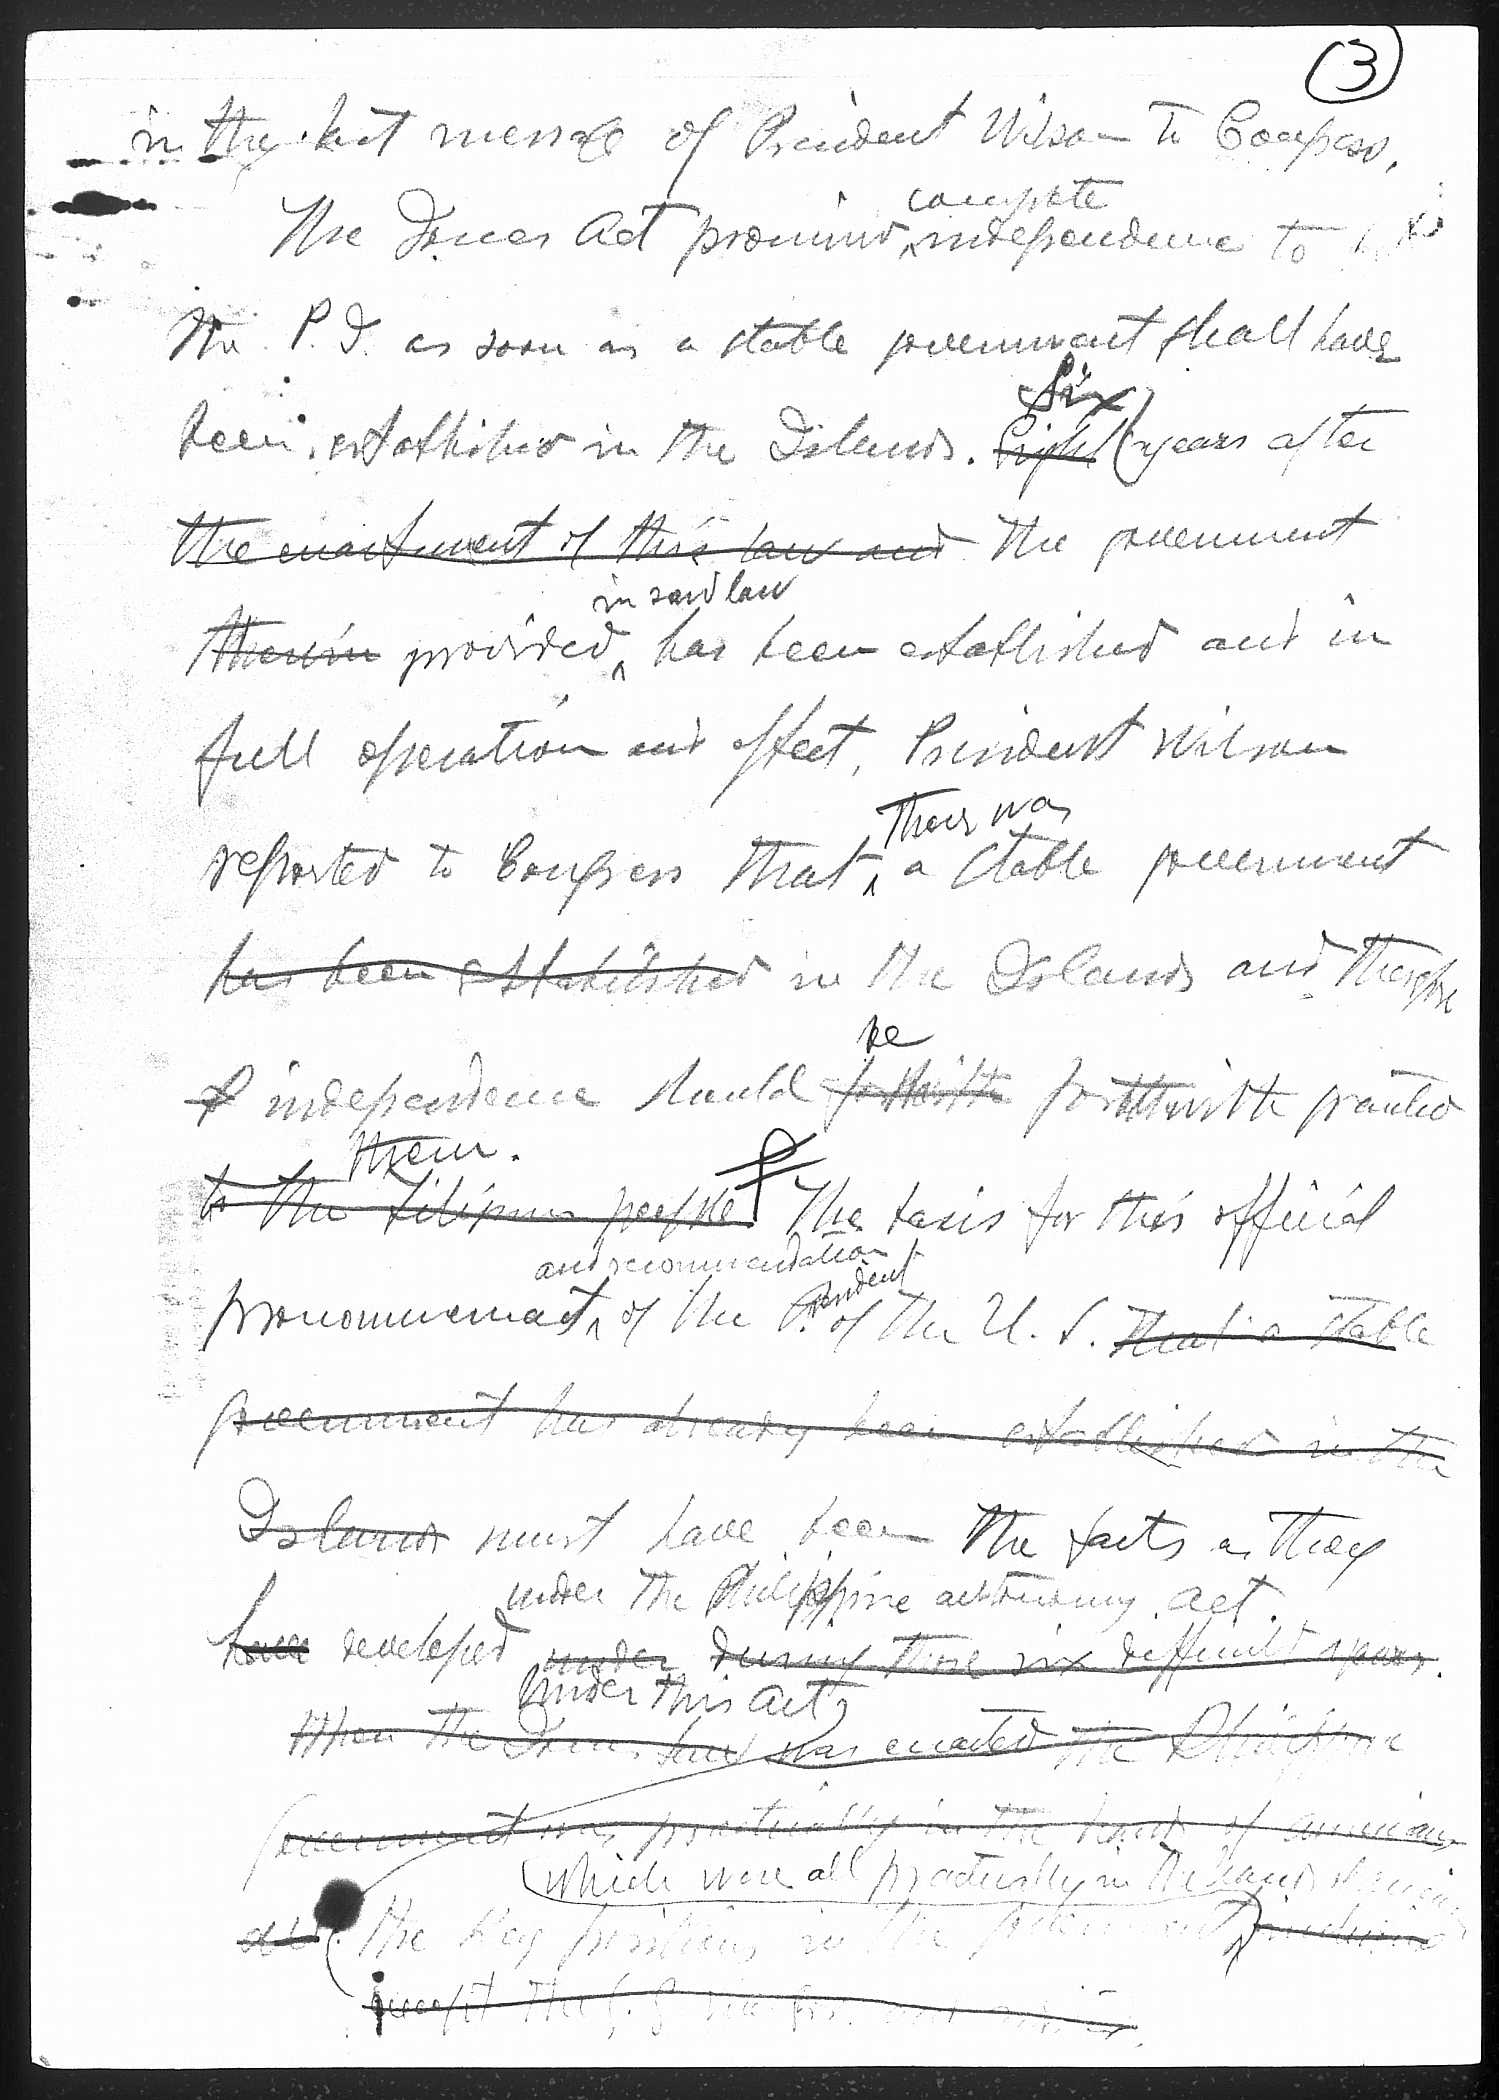 3
in the last message of President Wilson to Congress.
complete
The Jones Act promised independence to
the P.I. as soon as a stable government shall have
Six
been established in the Islands. Eight years after
the enactment of this law and the government
in said law
therein provided has been established and in
full operation and effect, President Wilson
there was
reported to Congress that a stable government
has been established in the Islands and therefore
be
independence should forthwith forthwith granted
them.
to the Filipino people. The basis for this official
and recommendation
pronouncement of the President of the U. S. that a stable
government has already been established in the
Islands must have been the facts as they
under the Philippine autonomy act.
have developed under during those six difficult years.
Under this act,
When the Jones Law was enacted the Philippine
Government was practically in the hands of Americans
which were all practically in the hands of
and the key positions in the
except the